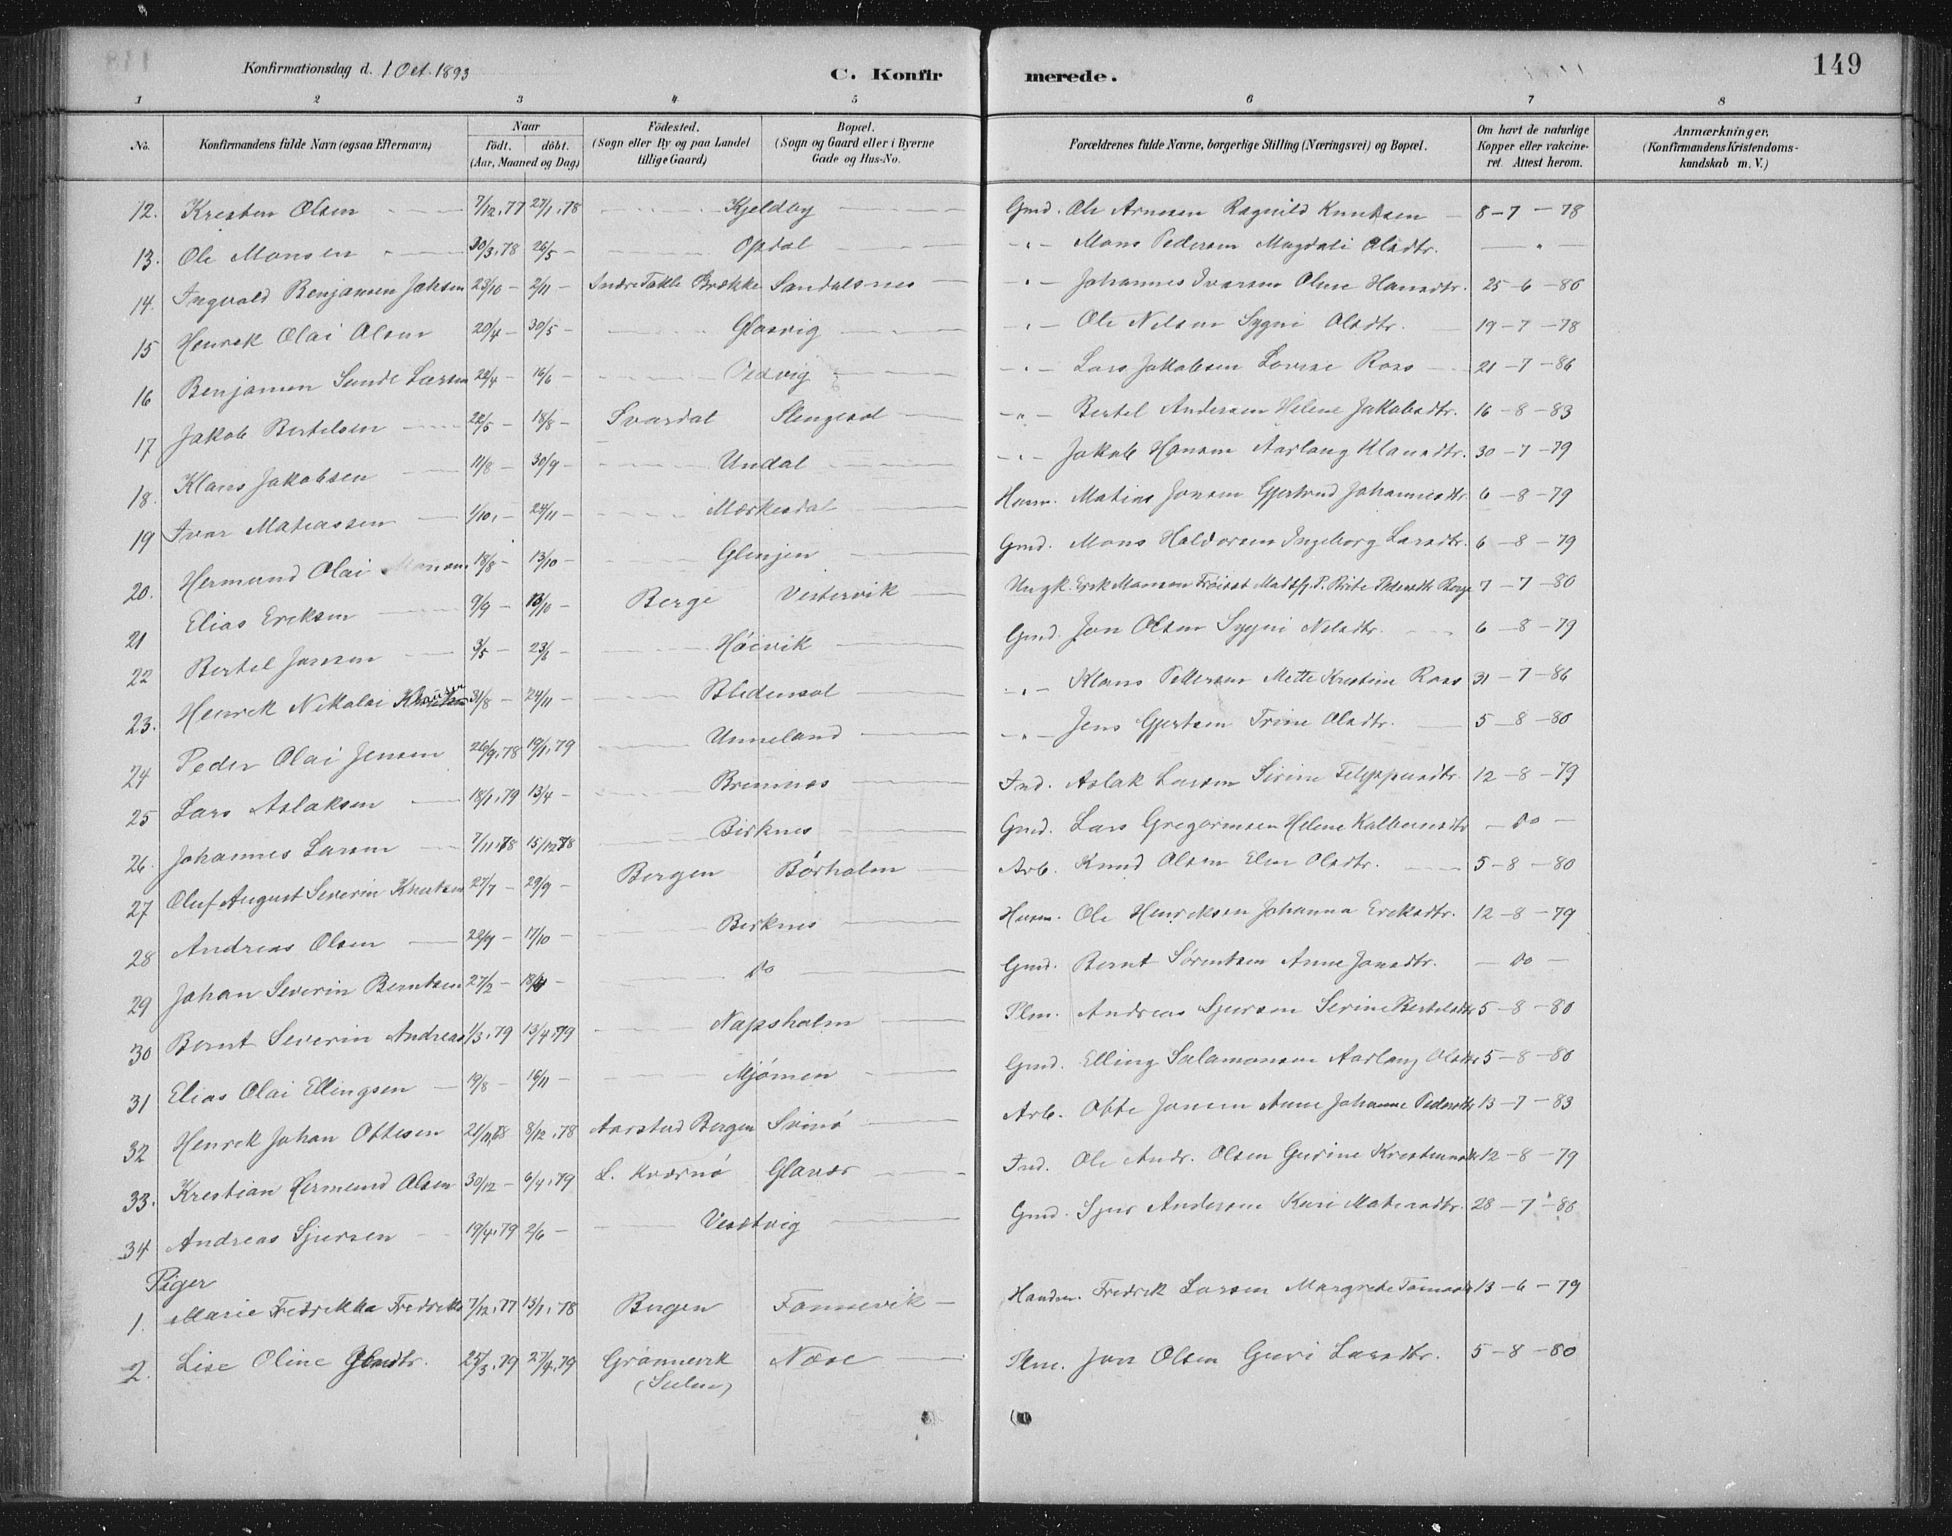 Konfirmationsdag d. 1 Oct. 1893
C. Konfirmerede.
149
1 2 3 4 5 6 7 8
No. Konfirmandens fulde Navn (ogsaa Efternavn) Naar födt. döbt. (Aar, Maaned og Dag) Födested. (Sogn eller By og paa Landet tillige Gaard) Bopæl. (Sogn og Gaard eller i Byerne Gade og Hus-No. Forældrenes fulde Navne, borgerlige Stilling (Næringsvei) og Bopæl. Om havt de naturlige Kopper eller vakcineret. Attest herom. Anmærkninger, (Konfirmandens Kristendomskundskab m. V.)
12. Kresten Olsen 7/12.77 27/1.78 Kjeldby Gmd. Ole Arnesen Ragnild Knudsen 8-7-78
13. Ole Monsen 30/3.78 26/5 - Opdal -"- Mons Pedersen Magdali Olsdtr. - " -
14. Ingvald Benjamen Johsen 23/10 - 2/11 - Indre Takle Brække Sandalsnes -"- Johannes Ivarsen Oline Hansdtr. 25-6-86
15 Henrek Olai Olsen 20/4 - 30/5 - Glosvig -"- Ole Nelsen Sygni Olsdtr. 19-7-78
16 Benjamen Sunde Larsen 22/4 - 16/6 - Vedvig -"- Lars Jakobsen Lovise Ross 21-7-86
17 Jakob Bertelsen 22/5 - 18/8 - Svardal Stengesol -"- Bertel Andersen Helene Jakobsdtr. 16-8-83
18. Klaus Jakobsen 11/8 - 30/9 - Undal -"- Jakob Hansen Aarlaug Klausdtr. 30-7-79
19 Ivar Mateassen 1/10. - 24/11 - Mærkesdal Husm. Matias Jonsen Gjertrud Johannesdtr. 6-8-79
20. Hermund Olai Monsen 18/8 - 13/10 - Glenjen Gmd. Mons Haldorsen Ingeborg Larsdtr. 6-8-79
21 Elias Ereksen 9/9 - 13/10 - Berge Vestervik Ungk. Erek Monsen Frøiset Birte Pedersdtr Berge 7-7-80
22 Bertel Jonsen 3/5 - 23/6 - Høivik Gmd. Jon Olsen Sygni Nelsdtr. 6-8-79
23. Henrek Nikolai Klausen 31/8 - 24/11 - Bledensol -"- Klaus Pettersen Mette Krestine Ross 31-7-86
24 Peder Olai Jensen 26/9.78 19/1.79 Unneland -"- Jens Gjertsen Trine Olsdtr. 5-8-80
25 Lars Aslaksen 18/1.79 13/4 - Bremnes Ind. Aslak Larsen Sirine Felippusdtr. 12-8-79
26. Johannes Larsen 7/11.78 15/12.78 Birknes Gmd. Lars Gregoriusen Helene Kolbensdtr - Do -
27 Oluf August Severin Knutsen 27/7 - 29/9 - Bergen Børholm Arb. Knud Olsen Elen Olsdtr. 5-8-80
28 Andreas Olsen 22/9 - 17/10 - Birknes Husm. Ole Henreksen Johanna Ereksdtr. 12-8-79
29 Johan Severin Berntsen 27/2 - Do Gmd. Bernt Sørentsen Anne Jonsdtr. - Do -
30 Bernt Severin Andreas 1/3.79 13/4.79 Napsholm Plm. Andreas Sjursen Serine Bertelsdtr 5-8-80
31 Elias Olai Ellingsen 19/8 - 16/11 - Mjømen Gmd. Elling Salamonsen Aarlaug Olsdtr 5-8-80
32 Henrek Johan Ottesen 8/12.78 Aarstad Bergen Svinø Arb. Otte Jonsen Anne Johanne Pedersdtr 13-7-83
33. Krestian Hermund Olsen 30/12 - 6/4.79 L. Kværnø Glavær Ind. Ole Andr. Olsen Gurine Krestensdtr 12-8-79
34 Andreas Sjursen 19/4.79 2/6 - Vestvig Gmd. Sjur Andersen Kari Mateasdtr. 28-7-86
Piger
1. Marie Fredrekka Fredreks 7/12.77 13/1.78 Bergen Fonnevik Handm. Fredrek Larsen Margrete Tomasdtr 13-6-79
2. Lise Oline 25/3.79 27/4.79 Grønnevik Nese Plm. Jon Olsen Guri Larsdtr. 5-8-80
(Sulen)